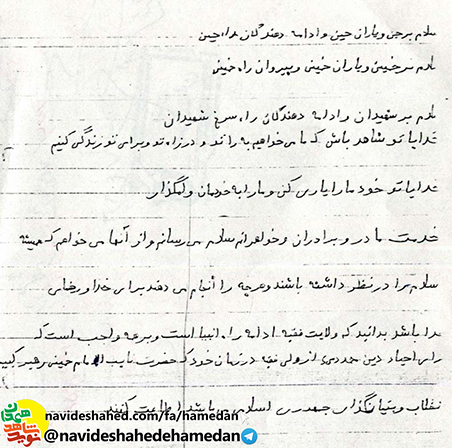 سلام بر حسین و یاران حسین و ادامه دهندگان راه حسین
سلام بر خمینی و یاران خمینی و پیروان راه خمینی
سلام بر شهیدان و ادامه دهندگان راه سرخ شهیدان
خدایا تو شاهد باش که ما می خواهیم به راه تو و در راه تو و برای تو زندگی کنیم
خدایا تو خود ما را یاری کن و ما را به خودمان وامگذار
خدمت مادر و برادران و خواهرانم سلام می رسانم و از آنها می خواهم که همیشه
اسلام را در نظر داشته باشند و هر چه را انجام می دهند برای خدا و رضای
خدا باشد بدانید که ولایت فقیه ادامه راه انبیا است و بر همه واجب است که
برای احیاء دین محمدی از ولی فقیه در زمان خود که حضرت نایب الامام خمینی رهبر کبیر
انقلاب و بنیانگذار جمهوری اسلامی می باشد اطاعت کنند
navideshahed.com/fa/hamedan
@navideshahedehamedan
نوید شاهد همدان